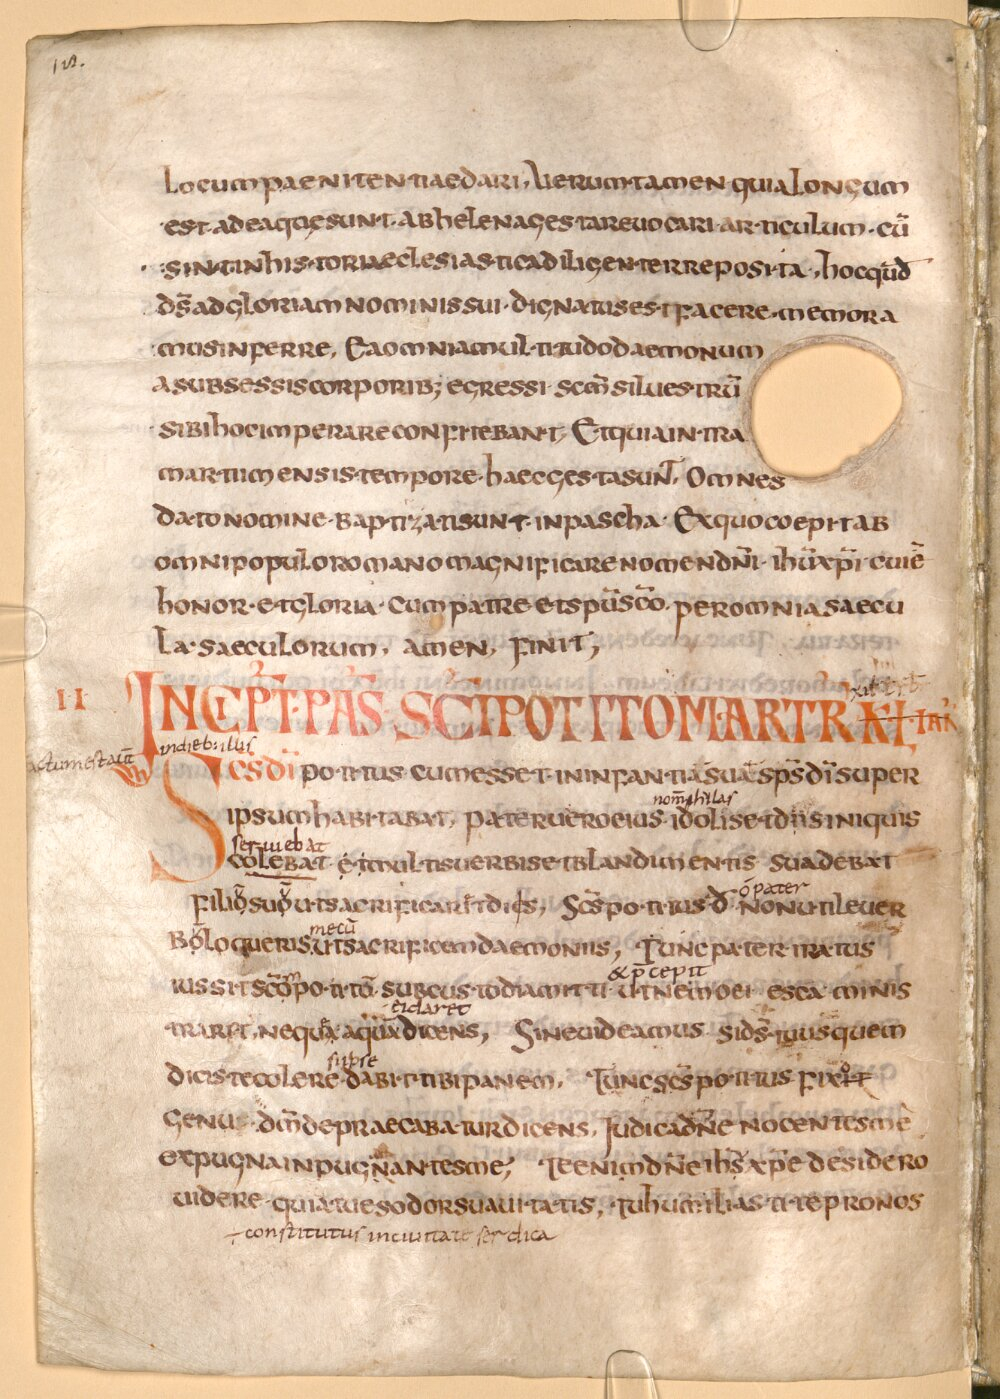 locum paenitentiae dari, Uerumtamen quia longum
est ad ea q; gesunt ab helena gesta reuocari articulum cū
sint in historia eclesiastica diligenter reposita, hoc quod
d̄s ad gloriam nominis sui dignatus est facere memora
mus inferre, Ea omnia multitudo daemonum
a subsessis corporib; egressi scm̄ siluestrū
sibi hoc imperare confitebant, Et quia intra
martium ensis tempore haec gesta sunt, Omnes
dato nomine baptizati sunt in pascha Ex quo coepit ab
omni populo romano magnificare nomen dn̄i ihū xp̄i cui ē
honor et gloria cum patre et sp̄u sc̄o per omnia saecu
la saeculorum, amen, finit,
II INCIPT PAS SCI POTITO MARTR KL IAN
actum est aut̄ in dieb: illis
Scs d̄i potitus cum esset in infantia sua sp̄s d̄i super
nom̄ philas
ipsum habitabat, pater uero eius idolis et diis iniquis
seruiebat
colebat et multis uerbis et blandimentis suadebat
filio suo ut sacrificaret diis, Scs potitus d̄ ō pater non utile uer
mecū
bo loqueris ut sacrificem daemoniis, Tunc pater iratus
& p̄cepit
iussit scōm potitō sub custodia mitti ut nemo ei esca minis
ei daret
traret, neque aquā dicens, Sine uideamus si d̄s tuus quem
sup se
dicis te colere dabit tibi panem, Tunc scs potitus fixo
genu dm̄ depraecabatur dicens, Iudica dn̄e nocentes me
expugna inpugnantes me, Te enim dn̄e ihs̄ xp̄e desidero
uidere quia tu es odor suauitatis, Tu humiliasti te pronos
constitutus in ciuitate serdica